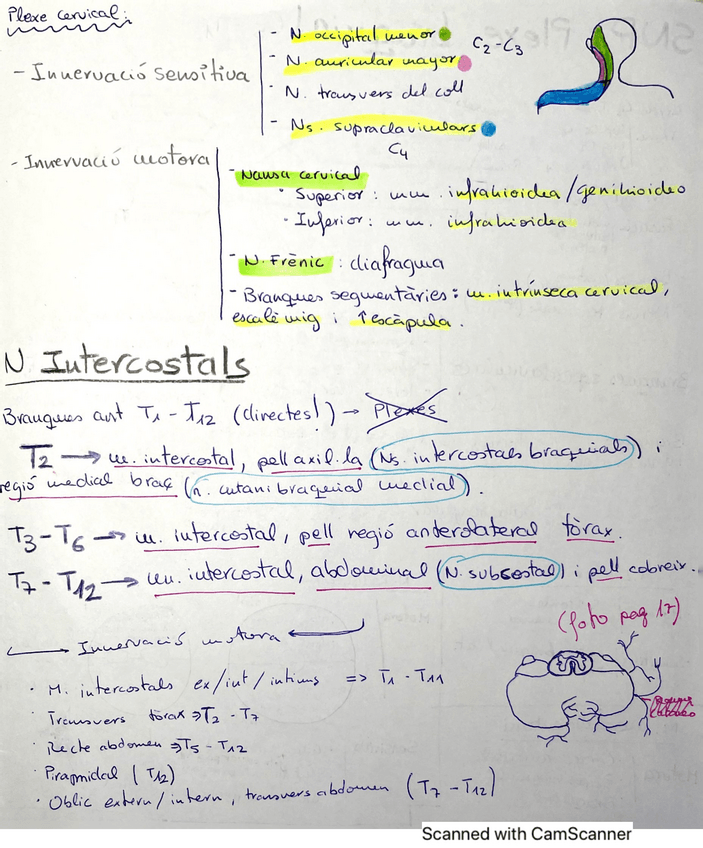 Plexe cervical:
- Innervació sensitiva
- N. occipital menor
C2-C3
- N. auricular mayor
- N. transvers del coll
- Ns. supraclaviculars
C4
- Innervació motora
- Nansa cervical
· Superior: mm. infrahioidea/genihioideo
- Inferior: mm. infrahioidea
- N. Frènic: diafragma
- Branques segmentàries: m. intrínseca cervical,
escalè mig i ↑escàpula.
N Intercostals
Branques ant T1 - T12 (directes!) → Plexes
T2 → m. intercostal, pell axil.la (Ns. intercostals braquials) i
regió medial braç (n. cutani braquial medial).
T3-T6 → m. intercostal, pell regió anterolateral tòrax.
T7-T12 → m. intercostal, abdominal (N. subcostal) i pell cobreix.
(foto pag 17)
Innervació motora
· M. intercostals ex/int/intims => T1 - T11
· Transvers tòrax => T2 - T7
· Recte abdomen => T5 - T12
· Piramidal (T12)
· Oblic extern/intern, transvers abdomen (T7 - T12)
Scanned with CamScanner